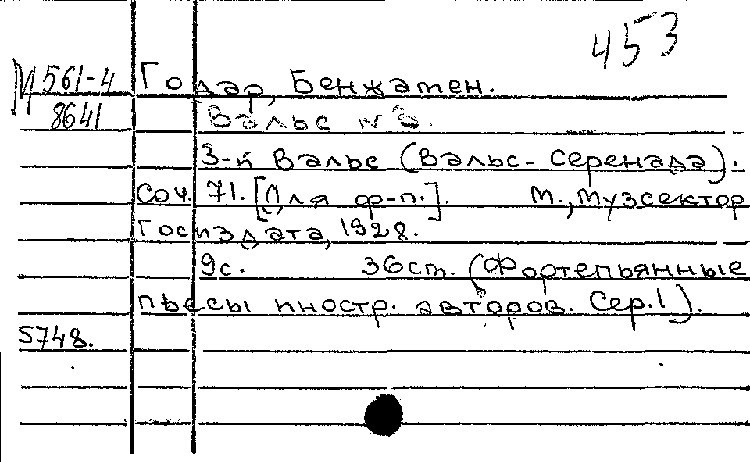 453
М 561-4
8641
Годар, Бенжамен.
Вальс №3.
3-й вальс (Вальс-серенада).
Соч. 71. [Для ф-п.]. М., Музсектор
Госиздата, 1928.
9с. 36см. (Фортепьянные
пьесы иностр. авторов. Сер.1).
5748.